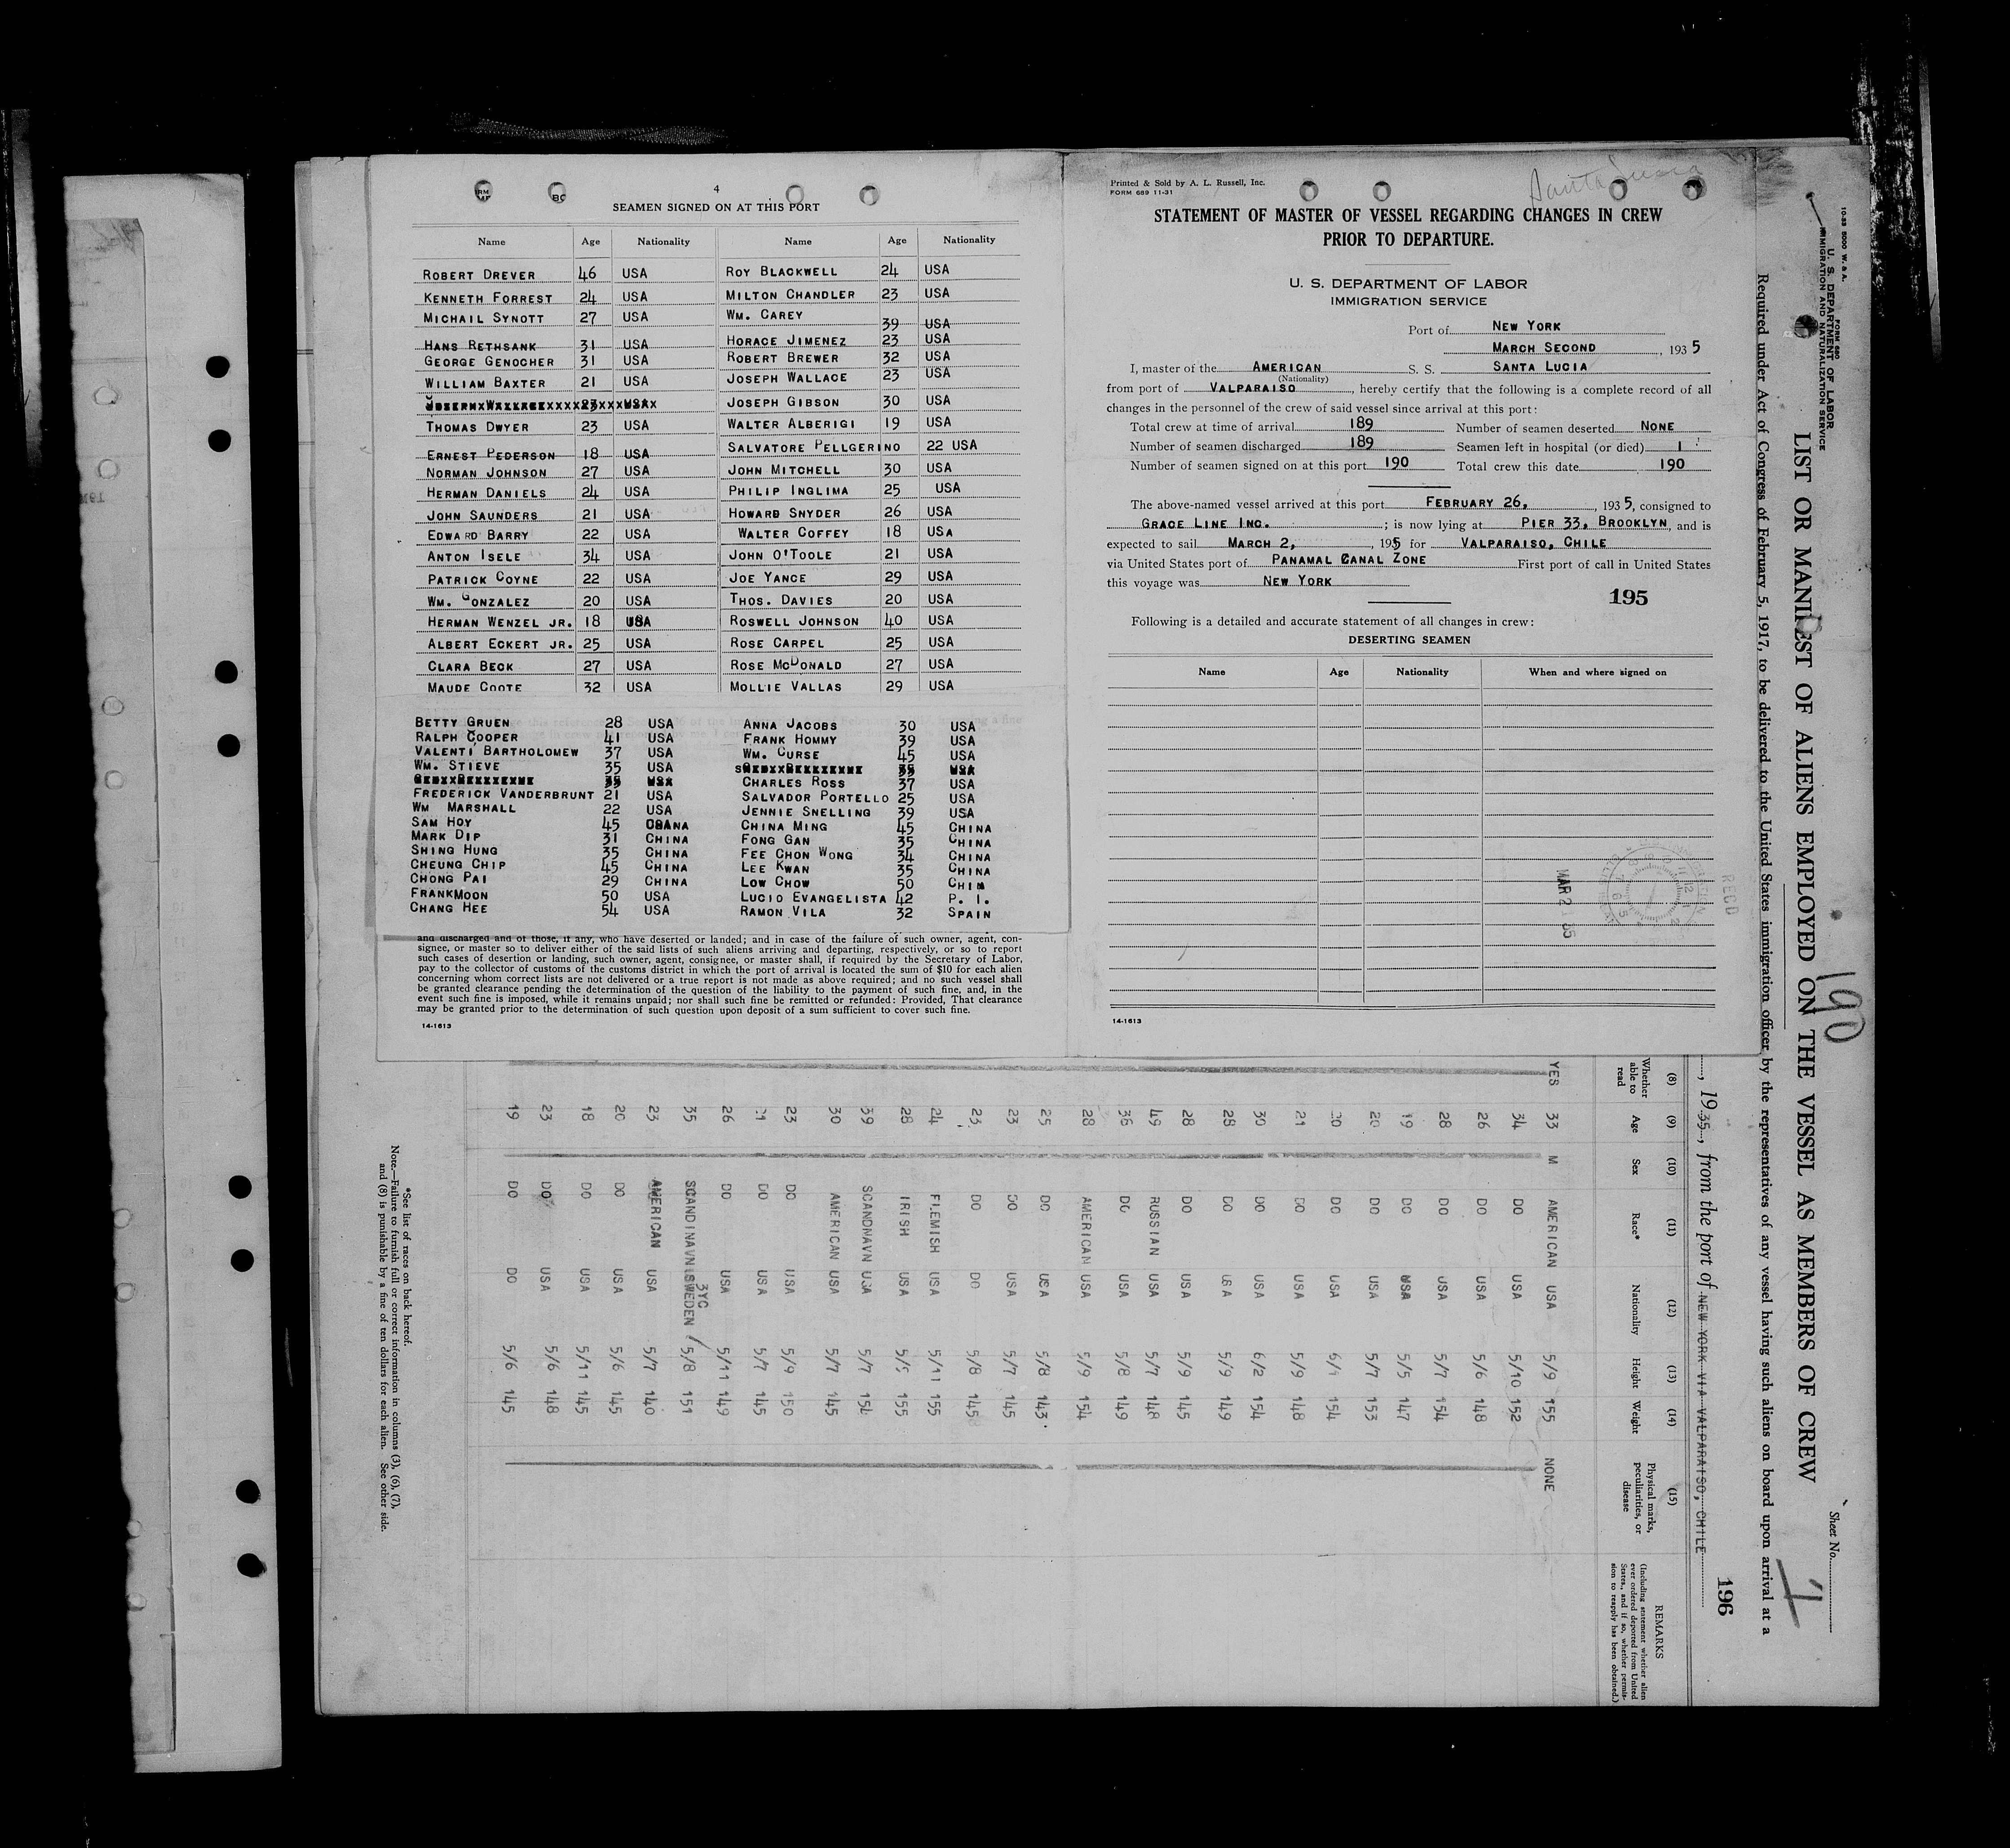 4
SEAMEN SIGNED ON AT THIS PORT
Name Age Nationality Name Age Nationality
ROBERT DREVER 46 USA ROY BLACKWELL 24 USA
KENNETH FORREST 24 USA MILTON CHANDLER 23 USA
MICHAIL SYNOTT 27 USA WM. CAREY 39 USA
HANS RETHSANK 31 USA HORACE JIMENEZ 23 USA
GEORGE GENOCHER 31 USA ROBERT BREWER 32 USA
WILLIAM BAXTER 21 USA JOSEPH WALLACE 23 USA
JOSEPH GIBSON 30 USA
THOMAS DWYER 23 USA WALTER ALBERIGI 19 USA
ERNEST PEDERSON 18 USA SALVATORE PELLGERINO 22 USA
NORMAN JOHNSON 27 USA JOHN MITCHELL 30 USA
HERMAN DANIELS 24 USA PHILIP INGLIMA 25 USA
JOHN SAUNDERS 21 USA HOWARD SNYDER 26 USA
EDWARD BARRY 22 USA WALTER COFFEY 18 USA
ANTON ISELE 34 USA JOHN O'TOOLE 21 USA
PATRICK COYNE 22 USA JOE YANCE 29 USA
WM. GONZALEZ 20 USA THOS. DAVIES 20 USA
HERMAN WENZEL JR. 18 USA ROSWELL JOHNSON 40 USA
ALBERT ECKERT JR. 25 USA ROSE CARPEL 25 USA
CLARA BECK 27 USA ROSE MCDONALD 27 USA
MAUDE COOTE 32 USA MOLLIE VALLAS 29 USA
BETTY GRUEN 28 USA ANNA JACOBS 30 USA
RALPH COOPER 41 USA FRANK HOMMY 39 USA
VALENTI BARTHOLOMEW 37 USA WM. CURSE 45 USA
WM. STIEVE 35 USA
CHARLES ROSS 37 USA
FREDERICK VANDERBRUNT 21 USA SALVADOR PORTELLO 25 USA
WM MARSHALL 22 USA JENNIE SNELLING 39 USA
SAM HOY 45 CHINA MING 45 CHINA
MARK DIP 31 CHINA FONG GAN 35 CHINA
SHING HUNG 35 CHINA FEE CHON WONG 34 CHINA
CHEUNG CHIP 45 CHINA LEE KWAN 35 CHINA
CHONG PAI 29 CHINA LOW CHOW 50 CHIN
FRANKMOON 50 USA LUCIO EVANGELISTA 42 P. I.
CHANG HEE 54 USA RAMON VILA 32 SPAIN
and discharged and of those, if any, who have deserted or landed; and in case of the failure of such owner, agent, con-
signee, or master so to deliver either of the said lists of such aliens arriving and departing, respectively, or so to report
such cases of desertion or landing, such owner, agent, consignee, or master shall, if required by the Secretary of Labor,
pay to the collector of customs of the customs district in which the port of arrival is located the sum of $10 for each alien
concerning whom correct lists are not delivered or a true report is not made as above required; and no such vessel shall
be granted clearance pending the determination of the question of the liability to the payment of such fine, and, in the
event such fine is imposed, while it remains unpaid; nor shall such fine be remitted or refunded: Provided, That clearance
may be granted prior to the determination of such question upon deposit of a sum sufficient to cover such fine.
14-1613
Printed & Sold by A. L. Russell, Inc.
FORM 689 11-31
Santa Lucia
STATEMENT OF MASTER OF VESSEL REGARDING CHANGES IN CREW
PRIOR TO DEPARTURE.
U. S. DEPARTMENT OF LABOR
IMMIGRATION SERVICE
Port of NEW YORK
MARCH SECOND, 1935
I, master of the AMERICAN S. S. SANTA LUCIA
(Nationality)
from port of VALPARAISO, hereby certify that the following is a complete record of all
changes in the personnel of the crew of said vessel since arrival at this port:
Total crew at time of arrival 189 Number of seamen deserted NONE
Number of seamen discharged 189 Seamen left in hospital (or died) 1
Number of seamen signed on at this port 190 Total crew this date 190
The above-named vessel arrived at this port FEBRUARY 26, 1935, consigned to
GRACE LINE INC. ; is now lying at PIER 33, BROOKLYN, and is
expected to sail MARCH 2, 1935 for VALPARAISO, CHILE
via United States port of PANAMAL CANAL ZONE First port of call in United States
this voyage was NEW YORK
195
Following is a detailed and accurate statement of all changes in crew:
DESERTING SEAMEN
Name Age Nationality When and where signed on
MAR 2
RECD
14-1613
10-33 5000 W. & A.
FORM 680
U. S. DEPARTMENT OF LABOR
IMMIGRATION AND NATURALIZATION SERVICE
LIST OR MANIFEST OF ALIENS EMPLOYED ON THE VESSEL AS MEMBERS OF CREW
Sheet No. 1
190
Required under Act of Congress of February 5, 1917, to be delivered to the United States immigration officer by the representatives of any vessel having such aliens on board upon arrival at a
196
, 1935, from the port of NEW YORK VIA VALPARAISO, CHILE
(8) (9) (10) (11) (12) (13) (14) (15)
Whether able to read Age Sex Race* Nationality Height Weight Physical marks, peculiarities, or disease REMARKS
(Including statement whether alien ever ordered deported from United States, and if so, whether permission to reapply has been obtained.)
YES 33 M AMERICAN USA 5/9 155 NONE
34 DO USA 5/10 152
26 DO USA 5/6 148
28 DO USA 5/7 154
19 DO USA 5/5 147
20 DO USA 5/7 153
20 DO USA 154
21 DO USA 5/9 148
30 DO USA 6/2 154
28 DO USA 5/9 149
28 DO USA 5/9 145
49 RUSSIAN USA 5/7 148
36 DO USA 5/8 149
28 AMERICAN USA 5/9 154
25 DO USA 5/8 143
23 DO USA 5/7 145
23 DO DO 5/8 145
24 FLEMISH USA 5/11 155
28 IRISH USA 155
39 SCANDNAVN USA 5/7 154
30 AMERICAN USA 5/7 145
23 DO USA 5/9 150
21 DO USA 5/7 145
26 DO USA 5/11 149
3YC
35 SCANDINAVN SWEDEN 5/8 151
23 AMERICAN USA 5/7 140
20 DO USA 5/6 145
18 DO USA 5/11 145
23 DO USA 5/6 148
19 DO DO 5/6 145
*See list of races on back hereof.
Note.—Failure to furnish full or correct information in columns (3), (6), (7),
and (8) is punishable by a fine of ten dollars for each alien. See other side.